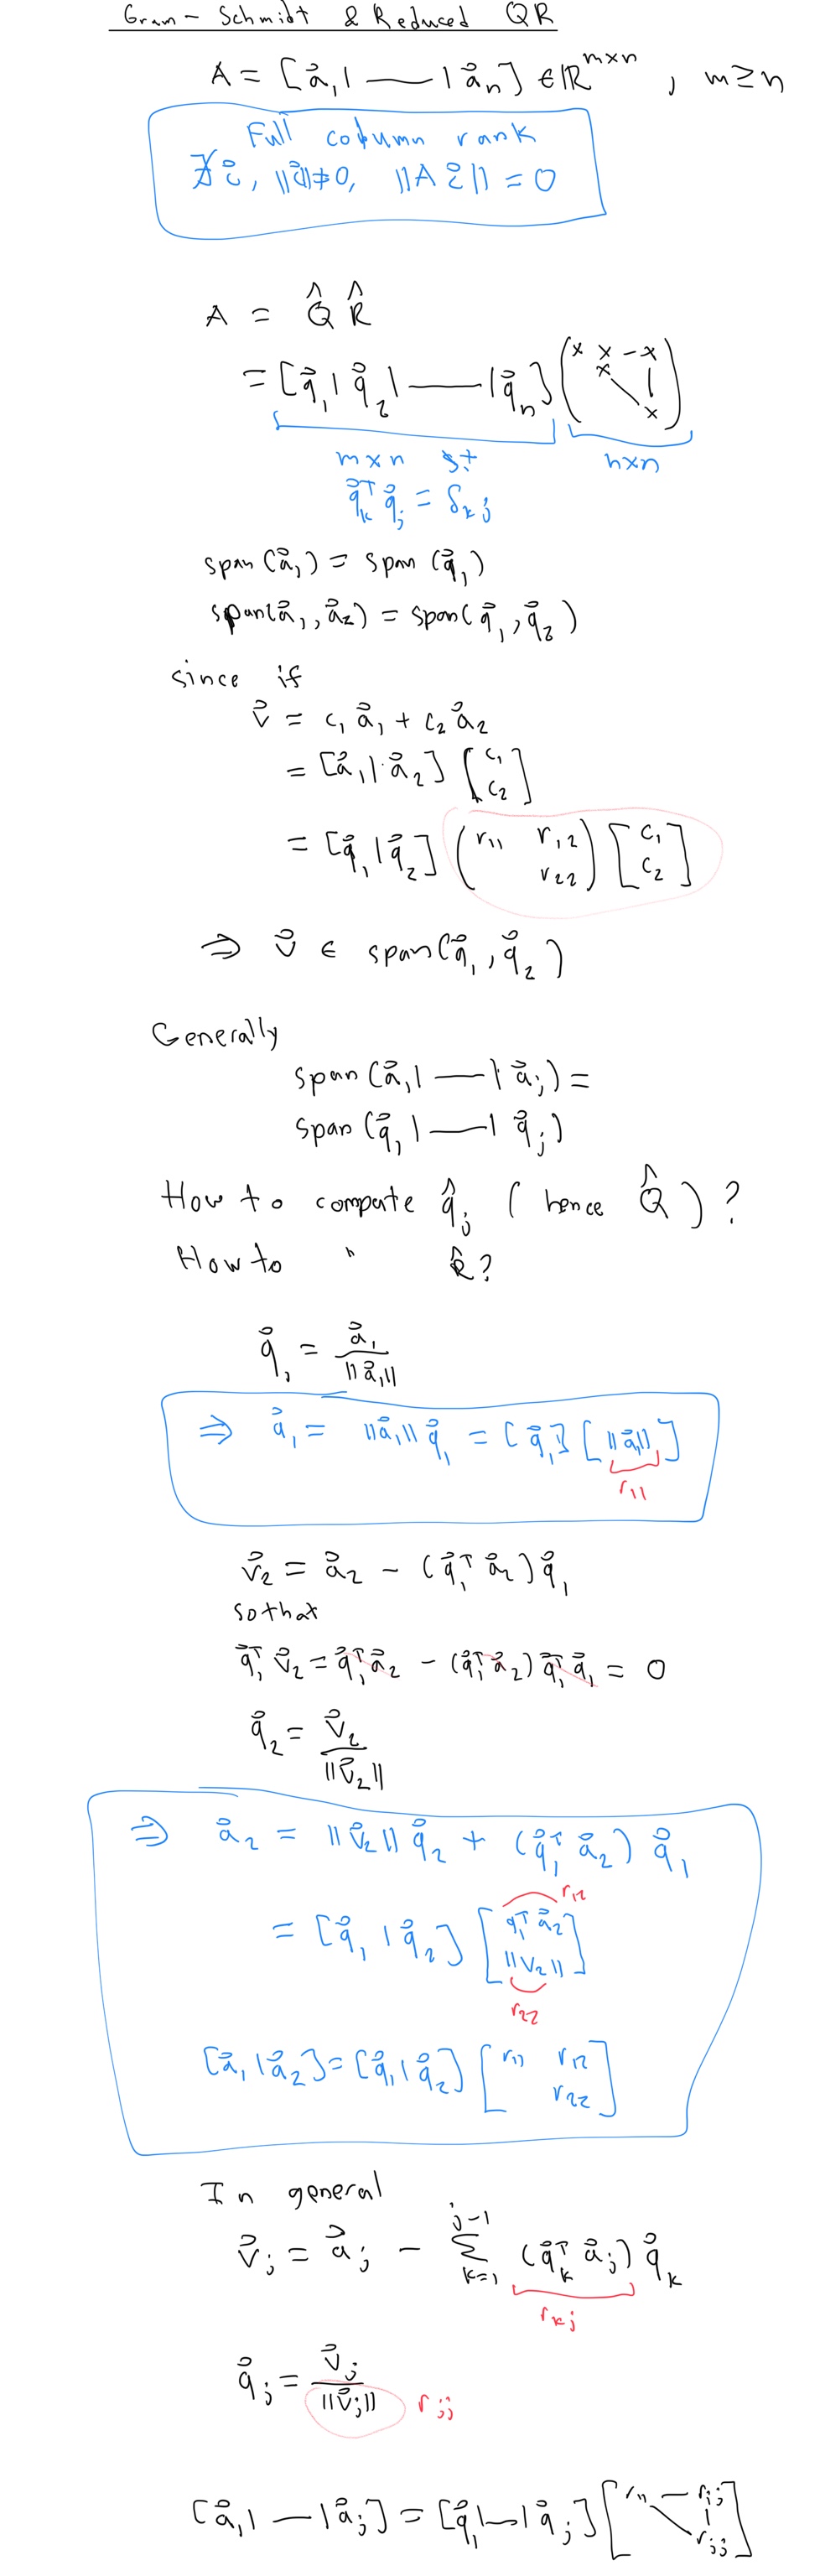 Gram - Schmidt & Reduced QR
A = [a⃗₁|——|a⃗ₙ] ∈ ℝᵐˣⁿ , m ≥ n
Full column rank
∄ c⃗, ||c⃗||≠0, ||A c⃗|| = 0
A = Q̂ R̂
= [q⃗₁|q⃗₂|——|q⃗ₙ] (x x - x x \ | x)
m×n s.t n×n
q⃗ₖᵀ q⃗ⱼ = δₖⱼ
span (a⃗₁) = span (q⃗₁)
span(a⃗₁, a⃗₂) = span(q⃗₁, q⃗₂)
since if
v⃗ = c₁ a⃗₁ + c₂ a⃗₂
= [a⃗₁|a⃗₂] [c₁ c₂]
= [q⃗₁|q⃗₂] (r₁₁ r₁₂ r₂₂) [c₁ c₂]
⇒ v⃗ ∈ span(q⃗₁, q⃗₂)
Generally
span (a⃗₁|——|a⃗ⱼ) =
span (q⃗₁|——|q⃗ⱼ)
How to compute q̂ⱼ (hence Q̂)?
How to " R̂?
q⃗₁ = a⃗₁ / ||a⃗₁||
⇒ a⃗₁ = ||a⃗₁|| q⃗₁ = [q⃗₁] [||a⃗₁||]
r₁₁
v⃗₂ = a⃗₂ - (q⃗₁ᵀ a⃗₂) q⃗₁
so that
q⃗₁ᵀ v⃗₂ = q⃗₁ᵀ a⃗₂ - (q⃗₁ᵀ a⃗₂) q⃗₁ᵀ q⃗₁ = 0
q⃗₂ = v⃗₂ / ||v⃗₂||
⇒ a⃗₂ = ||v⃗₂|| q⃗₂ + (q⃗₁ᵀ a⃗₂) q⃗₁
r₁₂
= [q⃗₁|q⃗₂] [q₁ᵀ a⃗₂ ||v₂||]
r₂₂
[a⃗₁|a⃗₂] = [q⃗₁|q⃗₂] [r₁₁ r₁₂ r₂₂]
In general
v⃗ⱼ = a⃗ⱼ - Σₖ₌₁ʲ⁻¹ (q⃗ₖᵀ a⃗ⱼ) q⃗ₖ
rₖⱼ
q⃗ⱼ = v⃗ⱼ / ||v⃗ⱼ|| rⱼⱼ
[a⃗₁|—|a⃗ⱼ] = [q⃗₁|—|q⃗ⱼ] [r₁₁ — r₁ⱼ \ | rⱼⱼ]